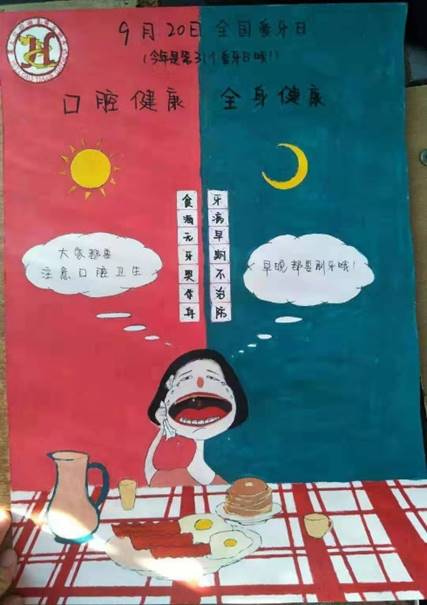 9月20日全国爱牙日
(今年是第31个爱牙日哦!!)
口腔健康 全身健康
牙病早期不治防
食无牙哭身
大家都要
注意口腔卫生
早晚都要刷牙哦!